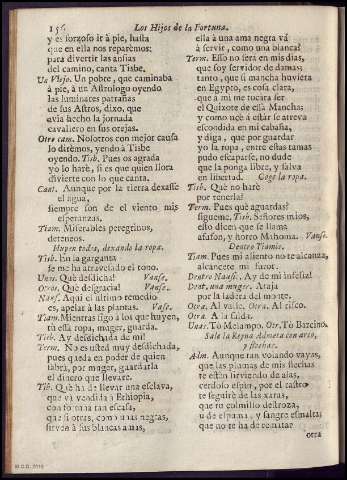 156 Los Hijos de la Fortuna.
y es forzoso ir à pie, hasta
que en ella nos reparèmos:
para divertir las ansias
del camino, canta Tisbe.
Un Viejo. Un pobre, que caminaba
à pie, à un Astrologo oyendo
las luminares patrañas
de sus Astros, dixo, que
avia hecho la jornada
cavallero en sus orejas.
Otro cam. Nosotros con mejor causa
lo dirèmos, yendo à Tisbe
oyendo. Tisb. Pues os agrada
yo lo harè, si es que quien llora
divierte con lo que canta.
Cant. Aunque por la tierra dexasse
el agua,
siempre son de el viento mis
esperanzas.
Tiam. Miserables peregrinos,
deteneos.
Huyen todos, dexando la ropa.
Tisb. En la garganta
se me ha atravesado el tono.
Unos. Què desdicha! Vanse.
Otros. Què desgracia! Vanse.
Nauf. Aqui el ultimo remedio
es, apelar à las plantas. Vase.
Tiam. Mientras sigo à los que huyen,
tù essa ropa, muger, guarda.
Tisb. Ay desdichada de mi!
Term. No es usted muy desdichada,
pues queda en poder de quien
sabrà, por muger, guardarla
el dinero que llevare.
Tisb. Què ha de llevar una esclava,
que và vendida à Ethiopia,
con fortuna tan escasa,
que si otras, como unas negras,
sirven à sus blancas amas,
ella à una ama negra và
à servir, como una blanca?
Term. Esso no serà en mis dias,
que soy servidor de damas;
tanto, que si mancha huviera
en Egypto, es cosa clara,
que à mi me tocàra ser
el Quixote de essa Mancha;
y como ucè à estàr se atreva
escondida en mi cabaña,
y diga, que por guardar
yo la ropa, entre estas ramas
pudo escaparse, no dude
que la ponga libre, y salva
en libertad. Coge la ropa.
Tisb. Què no harè
por tenerla?
Term. Pues què aguardas?
sigueme. Tisb. Señores mios,
esto dicen que se llama
afufon, y horro Mahoma. Vanse.
Dentro Tiamis.
Tiam. Pues mi aliento no te alcanza,
alcancete mi furor.
Dentro Nauf. Ay de mi infeliz!
Dent. una muger. Ataja
por la ladera del monte.
Otra. Al valle. Otra. Al risco.
Otra. A la falda.
Unas. Tò Melampo. Otr. Tò Barcino.
Sale la Reyna Admeta con arco,
y flechas.
Adm. Aunque tan volando vayas,
que las plumas de mis flechas
te estèn sirviendo de alas,
cerdoso espin, por el rastro
te seguirè de las xaras,
que tu colmillo destroza,
ù de espuma, y sangre esmalta:
que no te ha de contar
otra